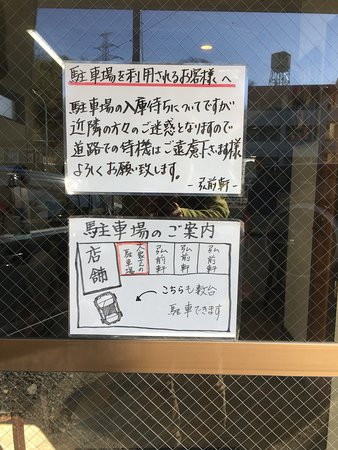 駐車場を利用されるお客様へ
駐車場の入庫待ちについてですが
近隣の方々のご迷惑となりますので
道路での待機はご遠慮下さいます様
よろしくお願い致します。
-弘前軒-
駐車場のご案内
店舗
大家さんの駐車場
弘前軒
弘前軒
弘前軒
こちらも数台
駐車できます